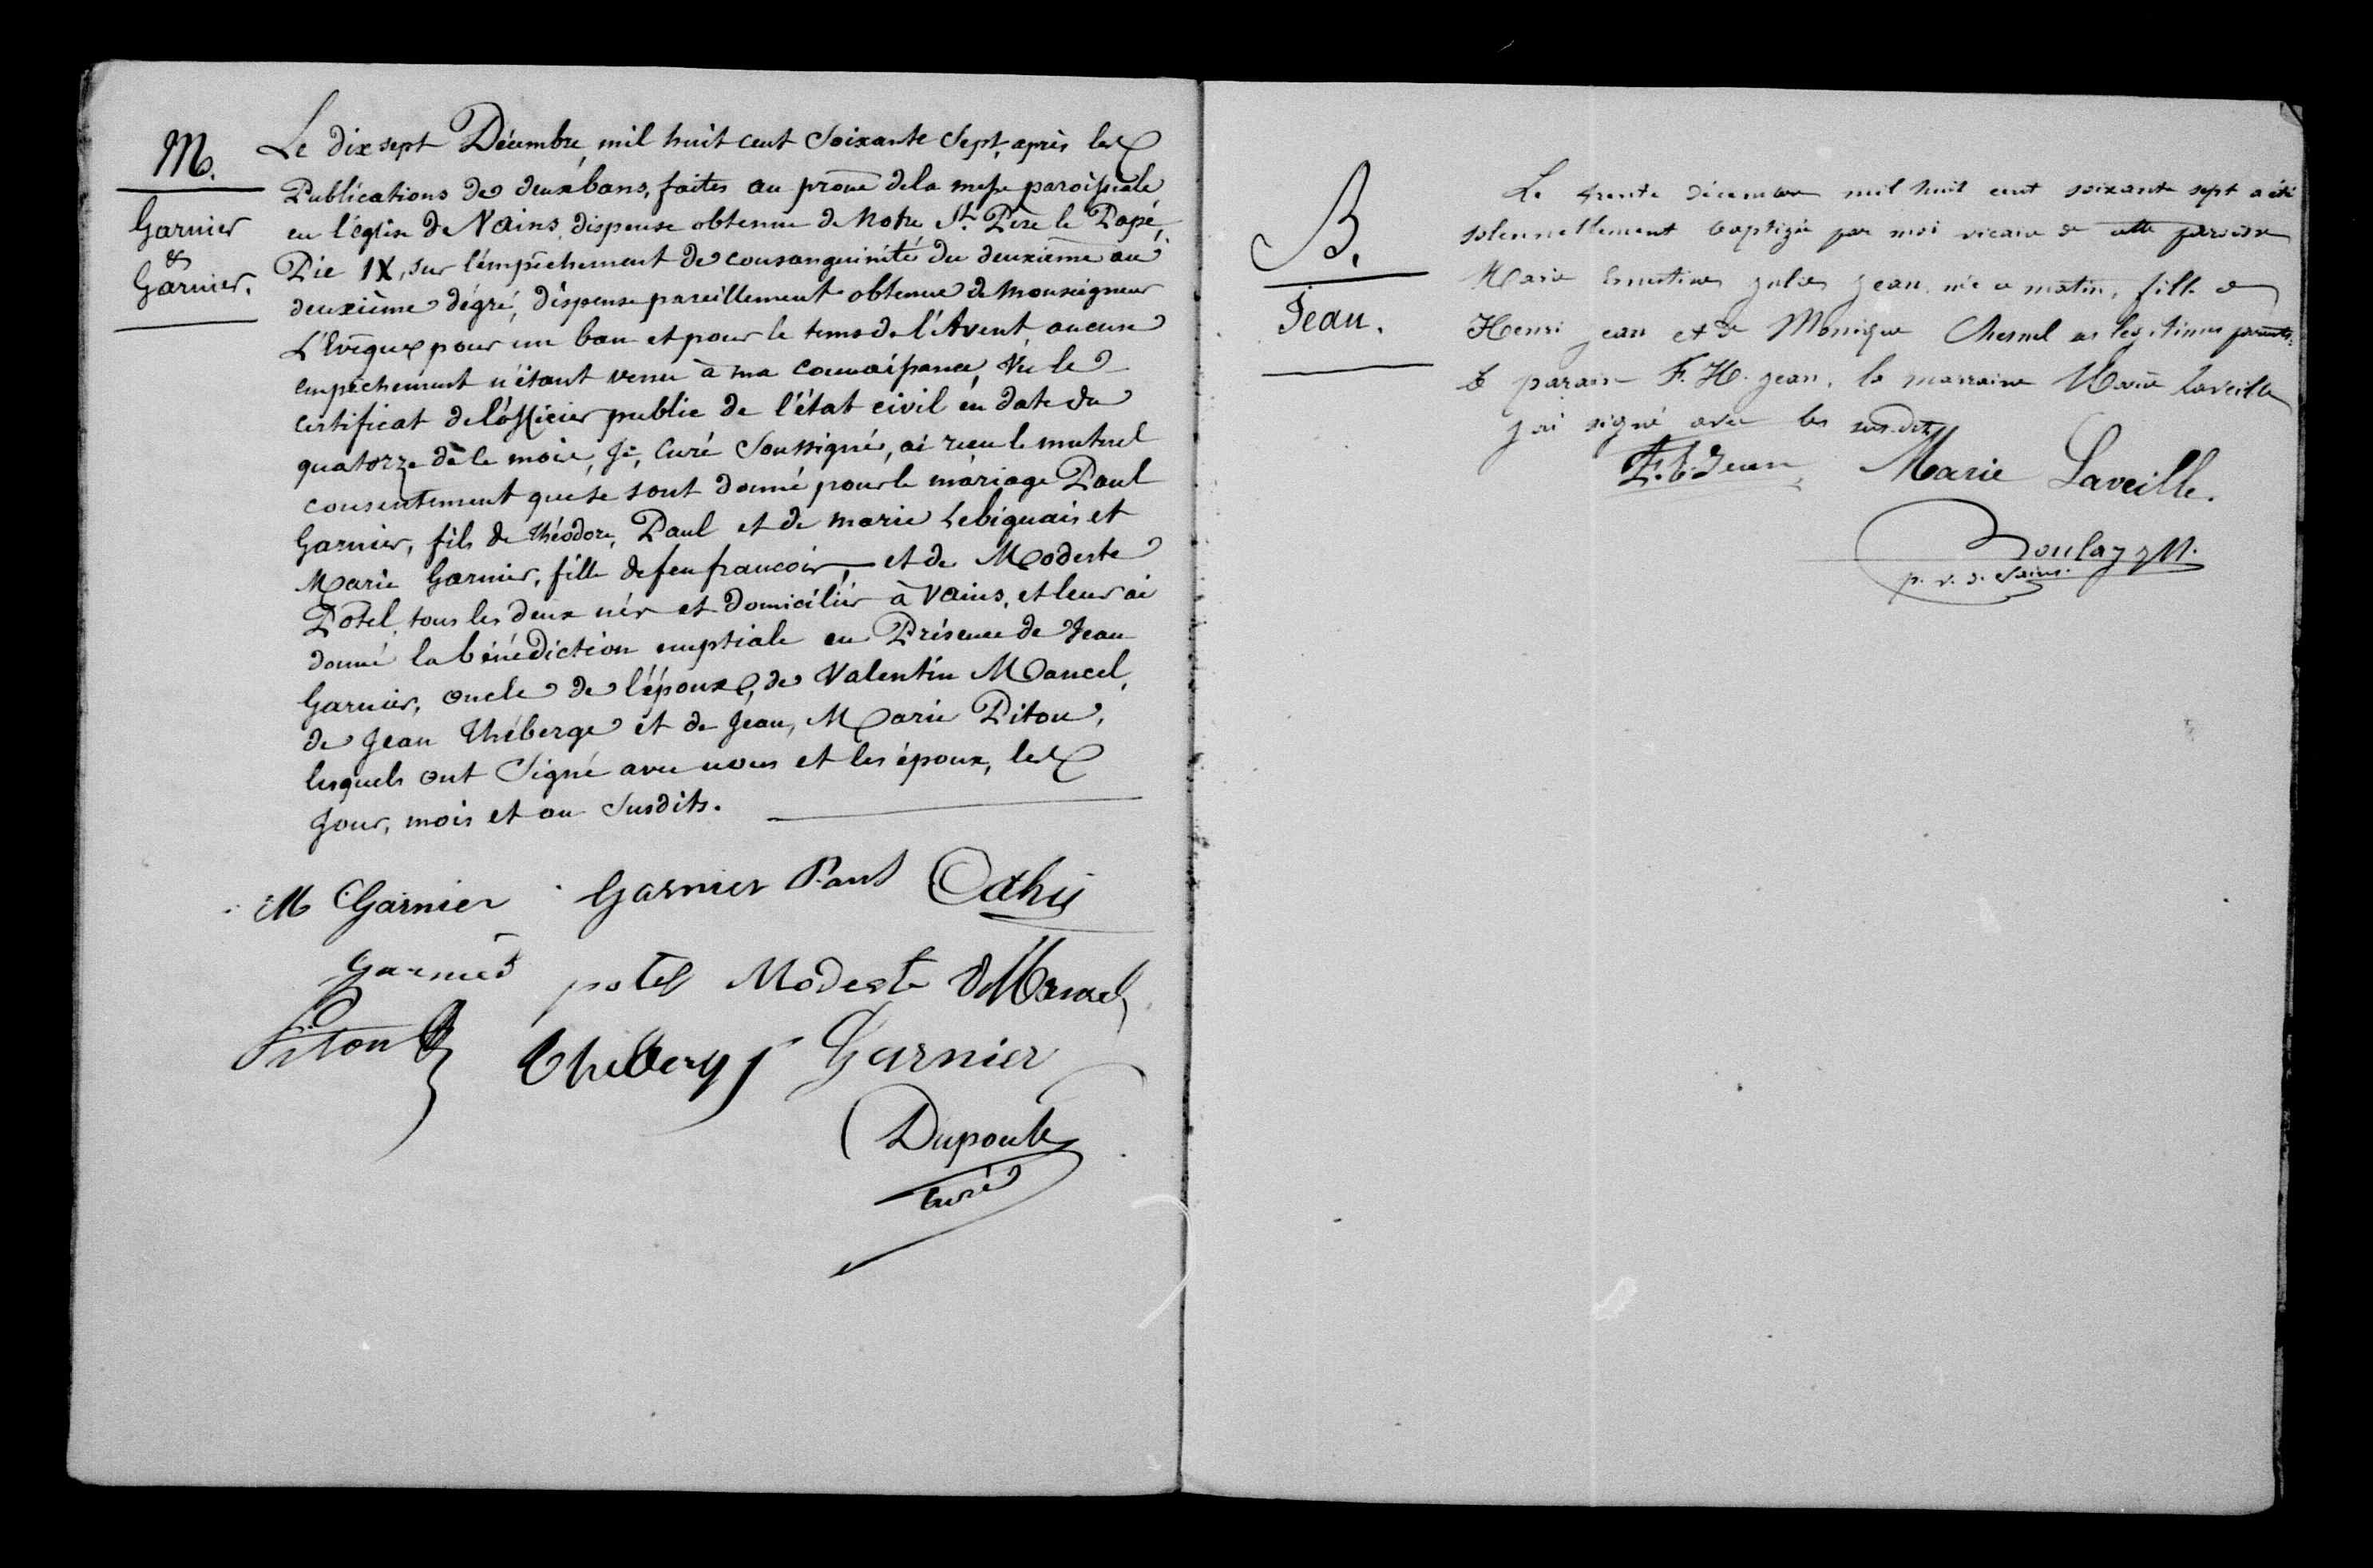 M.
Garnier
&
Garnier.
Le dix sept Décembre, mil huit cent Soixante Sept, après les
Publications de deux bans, faites au prône de la messe paroissiale
en l'église de Vains, dispense obtenue de Notre St Père le Pape,
Pie IX, sur l'empêchement de consanguinité du deuxième au
deuxième dégré, dispense pareillement obtenue de Monseigneur
L'Evêque pour un ban et pour le tems de l'Avent, aucun
empêchement n'étant venu à ma connaissance, Vu le
certificat de l'officier public de l'état civil en date du
quatorze de ce mois, Je, Curé Soussigné, ai reçu le mutuel
consentement que se sont donné pour le mariage Paul
Garnier, fils de Théodore, Paul et de marie Lebiguais et
Marie Garnier, fille de feu francois, et de Modeste
Potel, tous les deux nés et domiciliés à Vains, et leur ai
donné la bénédiction nuptiale en Présence de Jean
Garnier, oncle de l'époux, de Valentin Mancel,
de Jean Théberge et de Jean, Marie Piton,
lesquels ont Signé avec nous et les époux, les
Jour, mois et an Susdits.
M Garnier Garnier Paul
Garnier potel Modeste
Piton Theberge Garnier
Dupont
Curé
B.
Jean.
Le trente décembre mil huit cent soixante sept a été
solennellement baptizée par moi vicaire de cette paroisse
Marie Ernestine julie jean, née ce matin, fille de
Henri jean et de Monique Chesnel ses légitimes parents.
le parain F. H. jean, la marraine Marie Laveille
j'ai signé avec les susdits
Jean Marie Laveille.
Boulay
p. v. d. Vains.